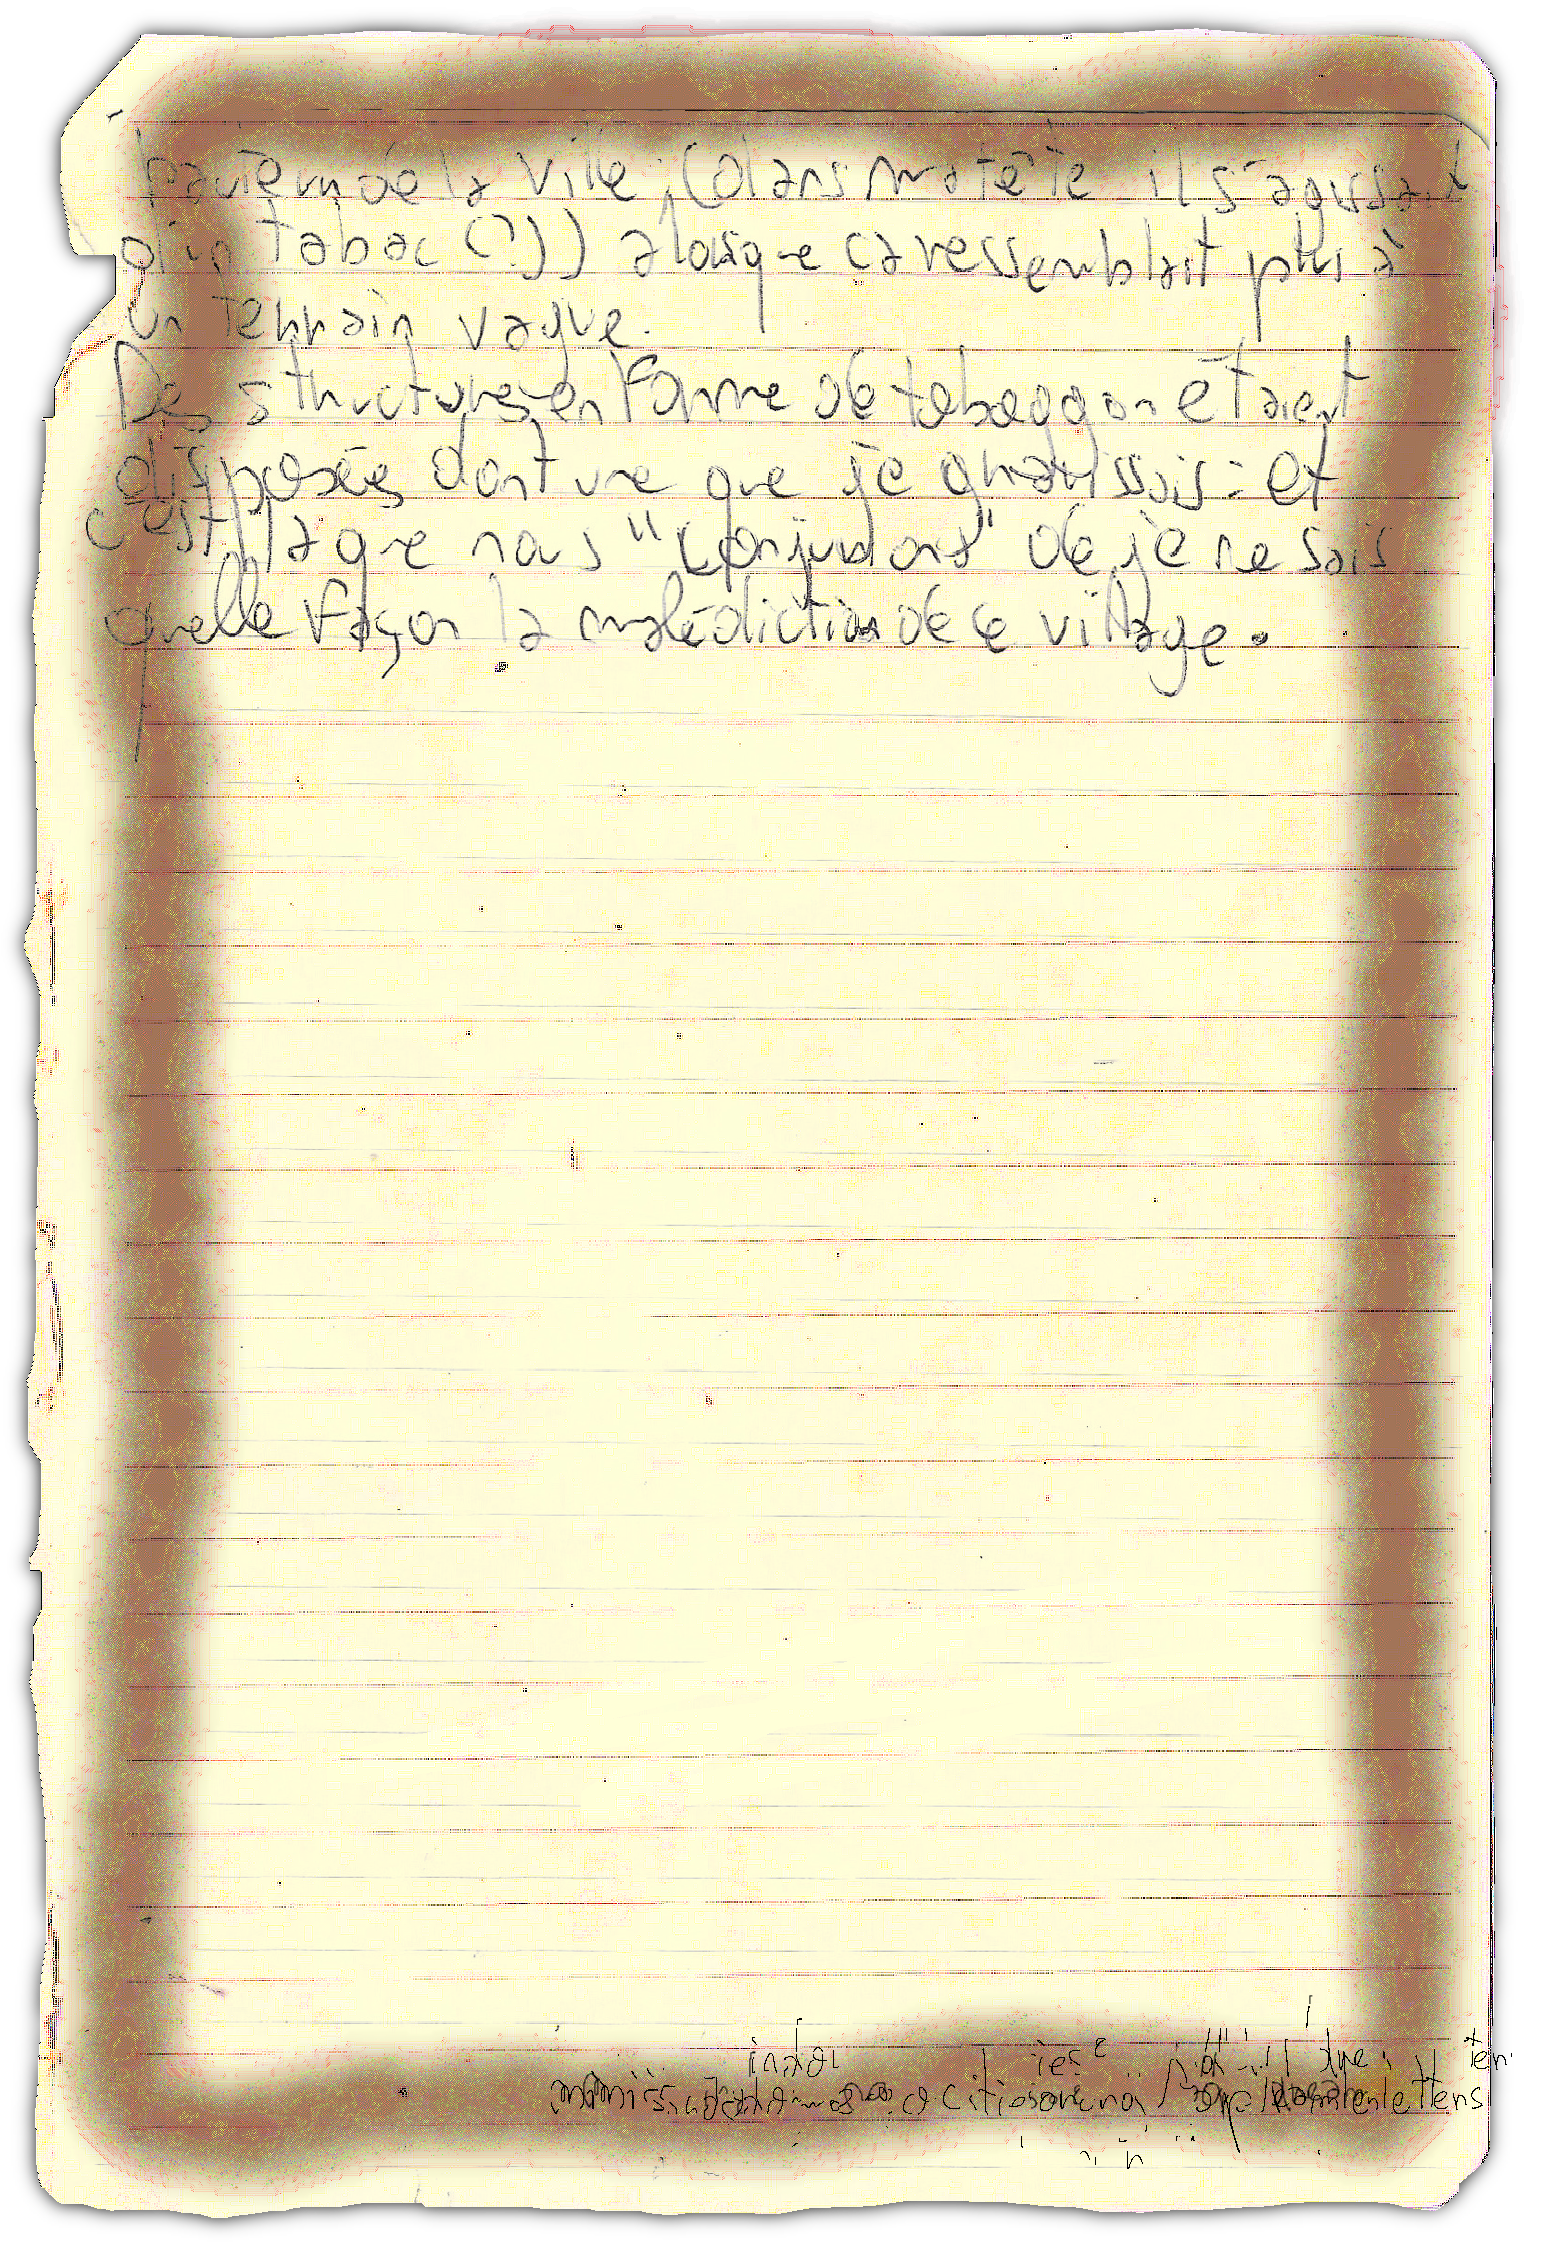 hauteur de la ville. (dans ma tête il s'agissait
d'un tabac (?)) alors que ca ressemblait plus à
un terrain vague.
Des structures en forme de toboggan étaient
disposées dont une que je gravissais : et
c'est là que nous "conjurions" de je ne sais
quelle façon la malédiction de ce village.